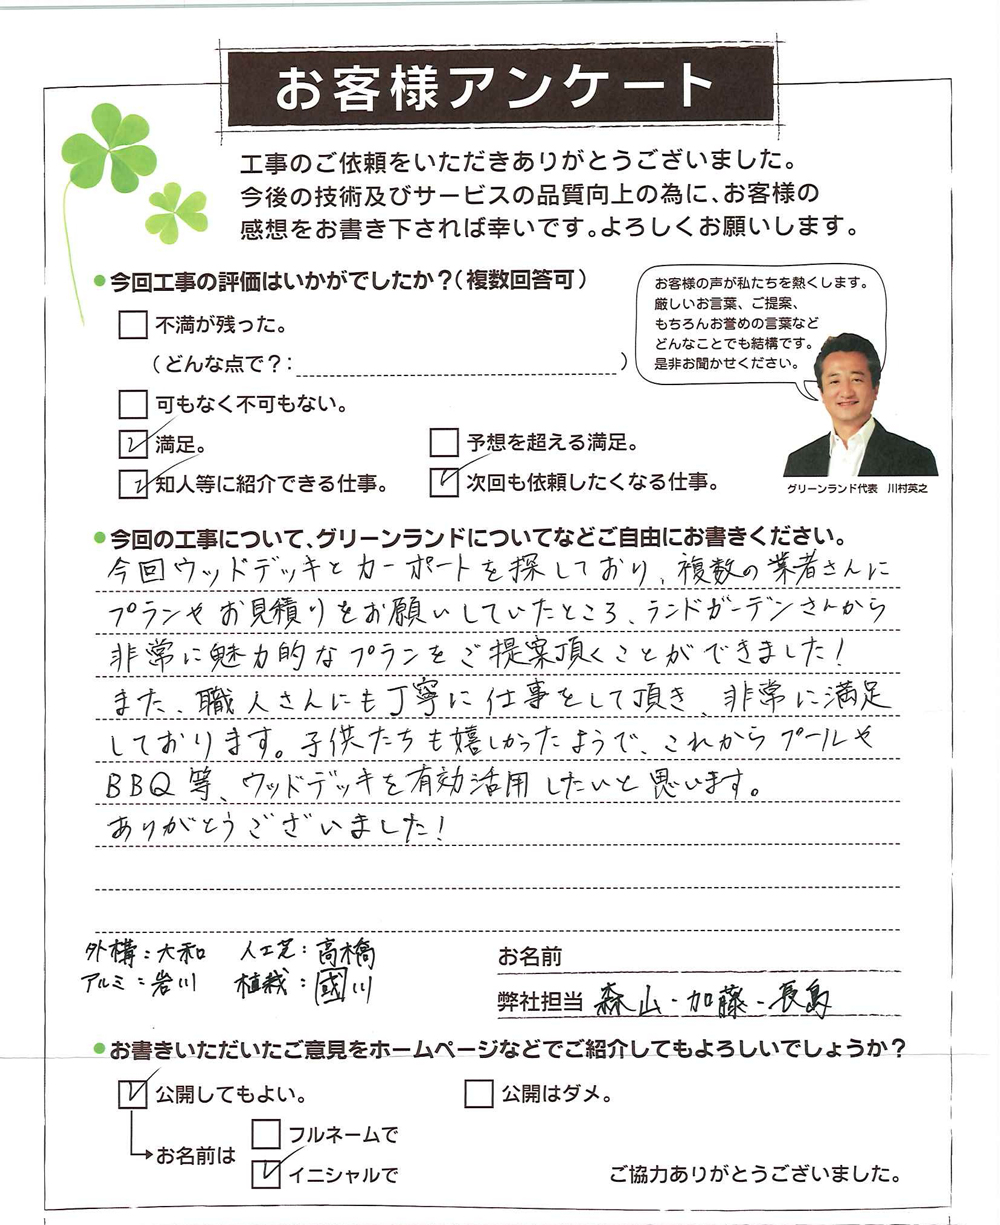 お客様アンケート
工事のご依頼をいただきありがとうございました。
今後の技術及びサービスの品質向上の為に、お客様の
感想をお書き下されば幸いです。よろしくお願いします。
今回工事の評価はいかがでしたか？（複数回答可）
お客様の声が私たちを熱くします。
厳しいお言葉、ご提案、
もちろんお誉めの言葉など
どんなことでも結構です。
是非お聞かせください。
グリーンランド代表　川村英之
不満が残った。
（どんな点で？：　）
可もなく不可もない。
満足。　予想を超える満足。
知人等に紹介できる仕事。　次回も依頼したくなる仕事。
今回の工事について、グリーンランドについてなどご自由にお書きください。
今回ウッドデッキとカーポートを探しており、複数の業者さんに
プランやお見積りをお願いしていたところ、ランドガーデンさんから
非常に魅力的なプランをご提案頂くことができました！
また、職人さんにも丁寧に仕事をして頂き、非常に満足
しております。子供たちも嬉しかったようで、これからプールや
BBQ等、ウッドデッキを有効活用したいと思います。
ありがとうございました！
外構：大和　人工芝：高橋
アルミ：岩川　植栽：國川
お名前
弊社担当　森山・加藤・長島
お書きいただいたご意見をホームページなどでご紹介してもよろしいでしょうか？
公開してもよい。　公開はダメ。
お名前は　フルネームで
イニシャルで
ご協力ありがとうございました。